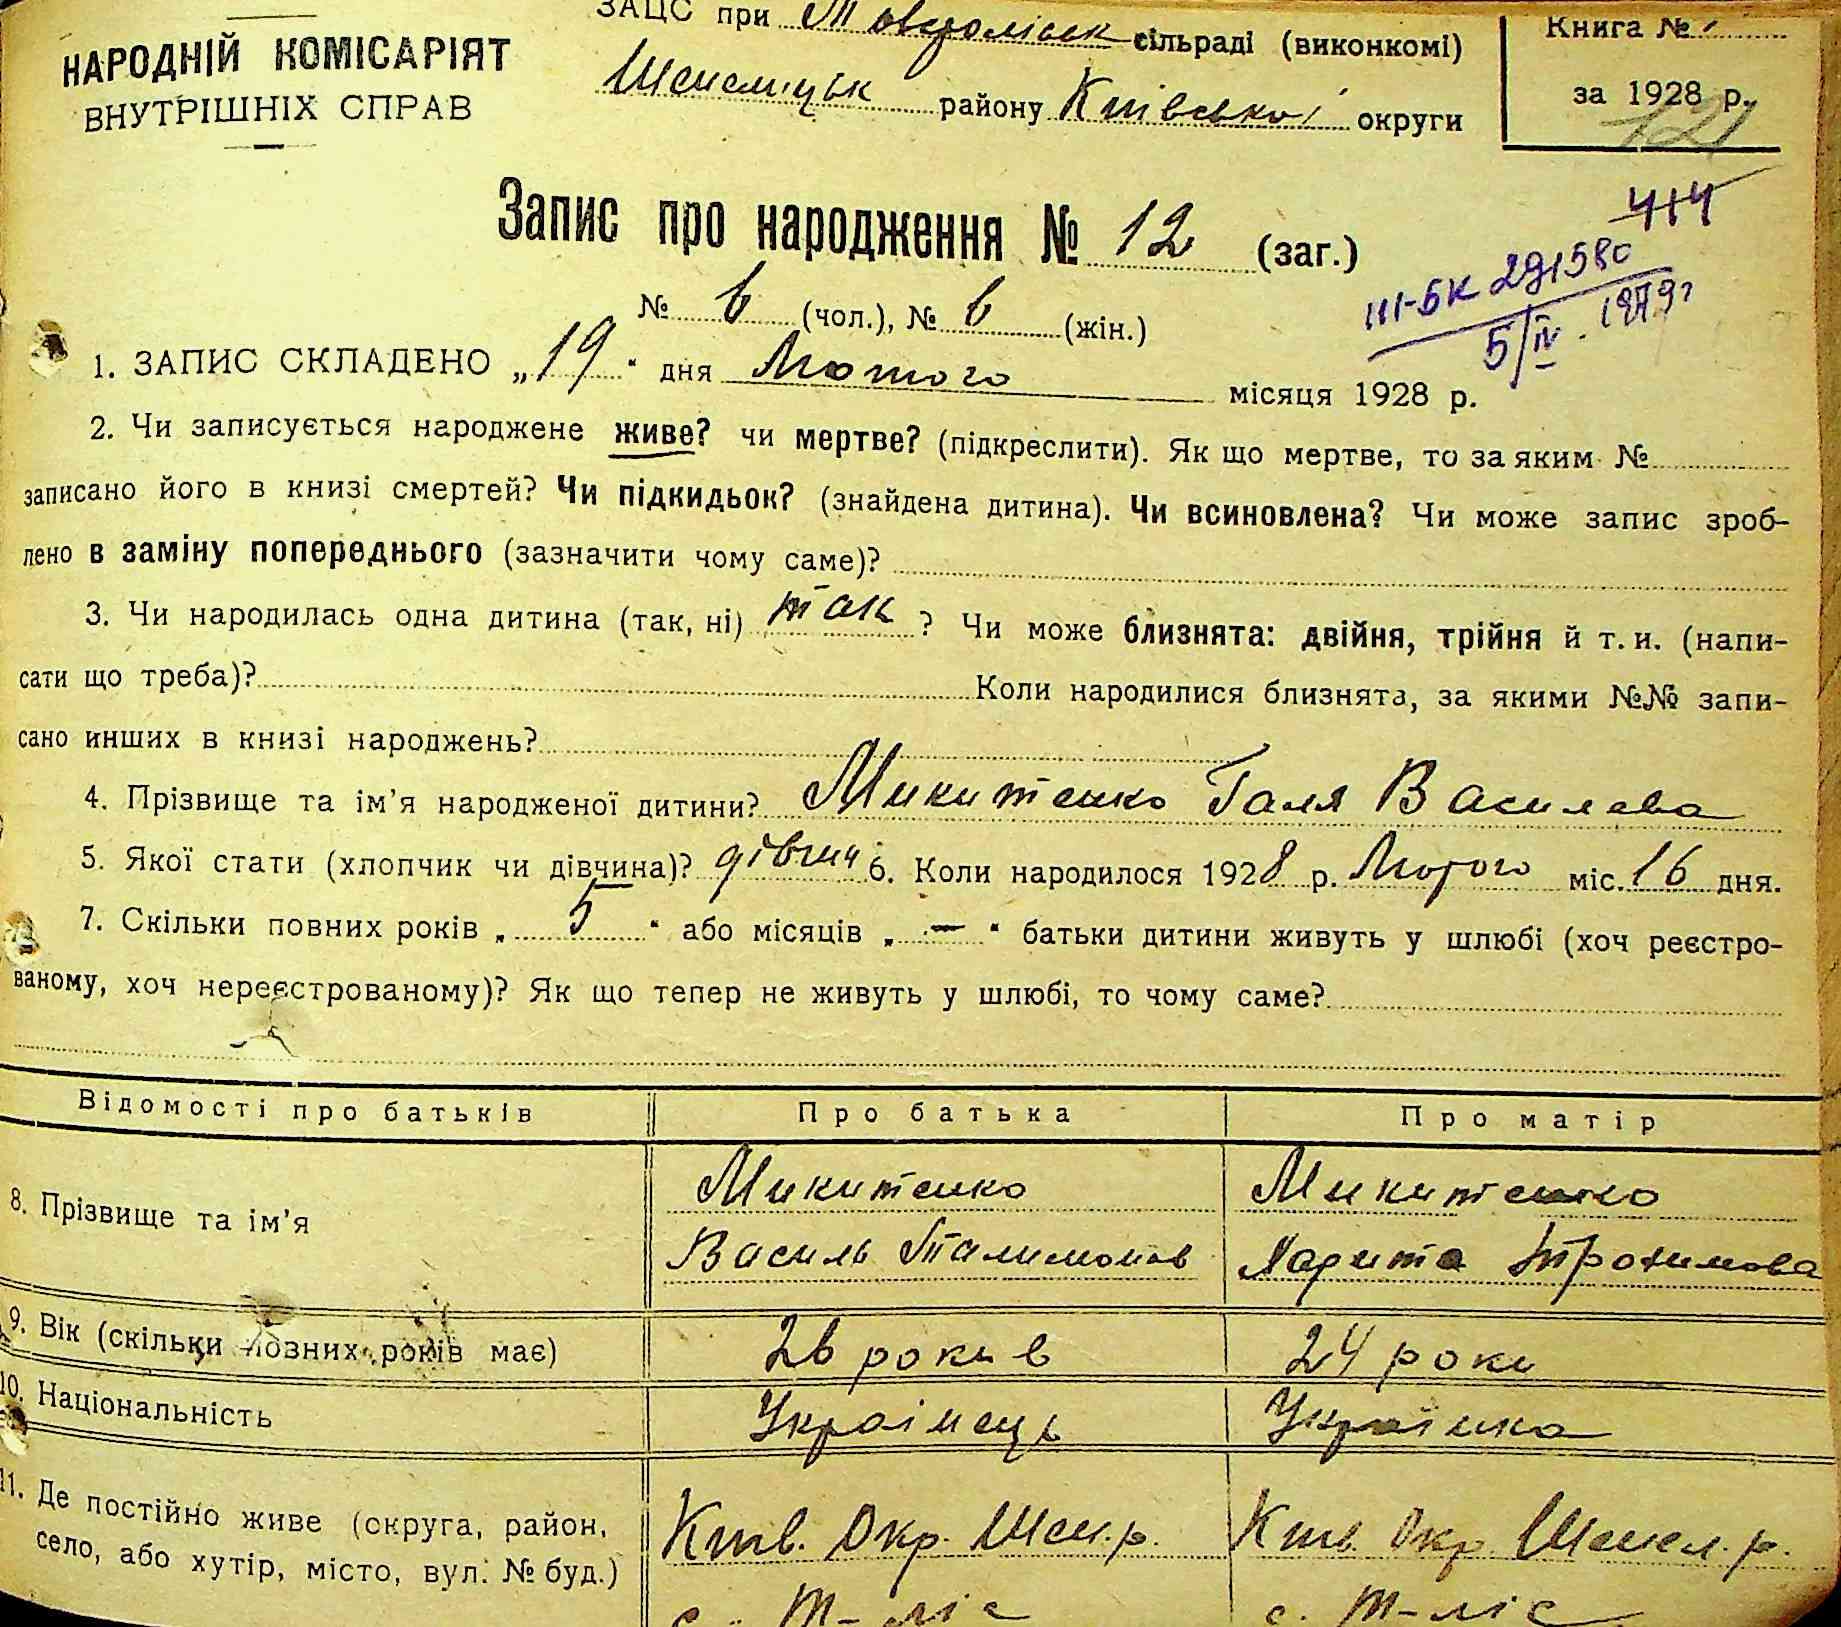 НАРОДНІЙ КОМІСАРІЯТ
ВНУТРІШНІХ СПРАВ
ЗАЦС при сільраді (виконкомі)
району Київської округи
Книга №
за 1928 р.
121
Запис про народження № 12 (заг.)
414
III-БК 291580
5/IV. 1979г
№ 6 (чол.), № 6 (жін.)
1. ЗАПИС СКЛАДЕНО „19“ дня Лютого місяця 1928 р.
2. Чи записується народжене живе? чи мертве? (підкреслити). Як що мертве, то за яким №
записано його в книзі смертей? Чи підкидьок? (знайдена дитина). Чи всиновлена? Чи може запис зроб-
лено в заміну попереднього (зазначити чому саме)?
3. Чи народилась одна дитина (так, ні) так? Чи може близнята: двійня, трійня й т. и. (напи-
сати що треба)? Коли народилися близнята, за якими №№ запи-
сано инших в книзі народжень?
4. Прізвище та ім’я народженої дитини? Микитенко Галя Василева
5. Якої стати (хлопчик чи дівчина)? дівчин 6. Коли народилося 1928 р. Лютого міс. 16 дня.
7. Скільки повних років „ 5 “ або місяців „ — “ батьки дитини живуть у шлюбі (хоч реєстро-
ваному, хоч нереєстрованому)? Як що тепер не живуть у шлюбі, то чому саме?
Відомості про батьків Про батька Про матір
8. Прізвище та ім’я
Микитенко Микитенко
Василь Талимонов Харита Трохимова
9. Вік (скільки повних років має) 26 років 24 роки
10. Національність Українець Українка
11. Де постійно живе (округа, район,
село, або хутір, місто, вул. № буд.)
Київ. Окр. Шем.р. Київ. Окр. Шемел.р.
с. Т-ліс с. Т-ліс